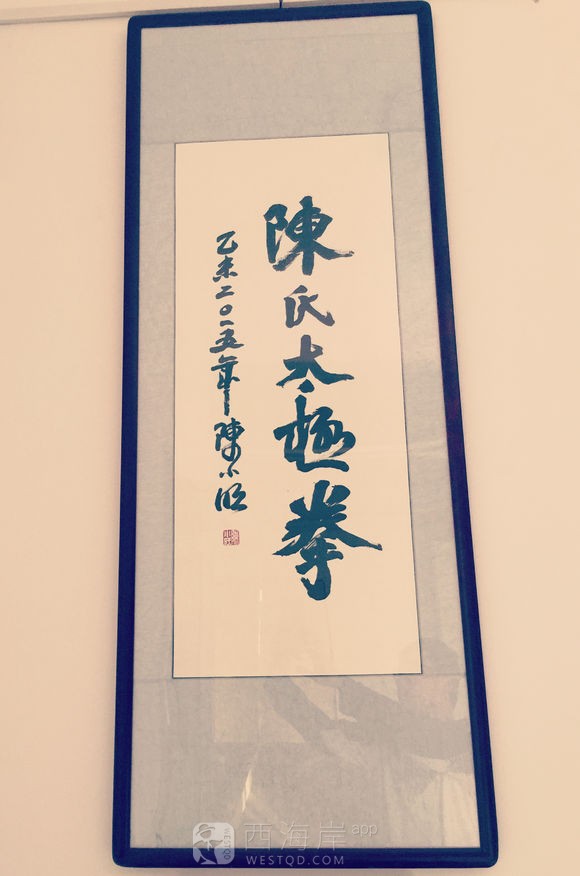 陳氏太極拳
乙未二〇一五年陳小旺
西海岸app
WESTQD.COM